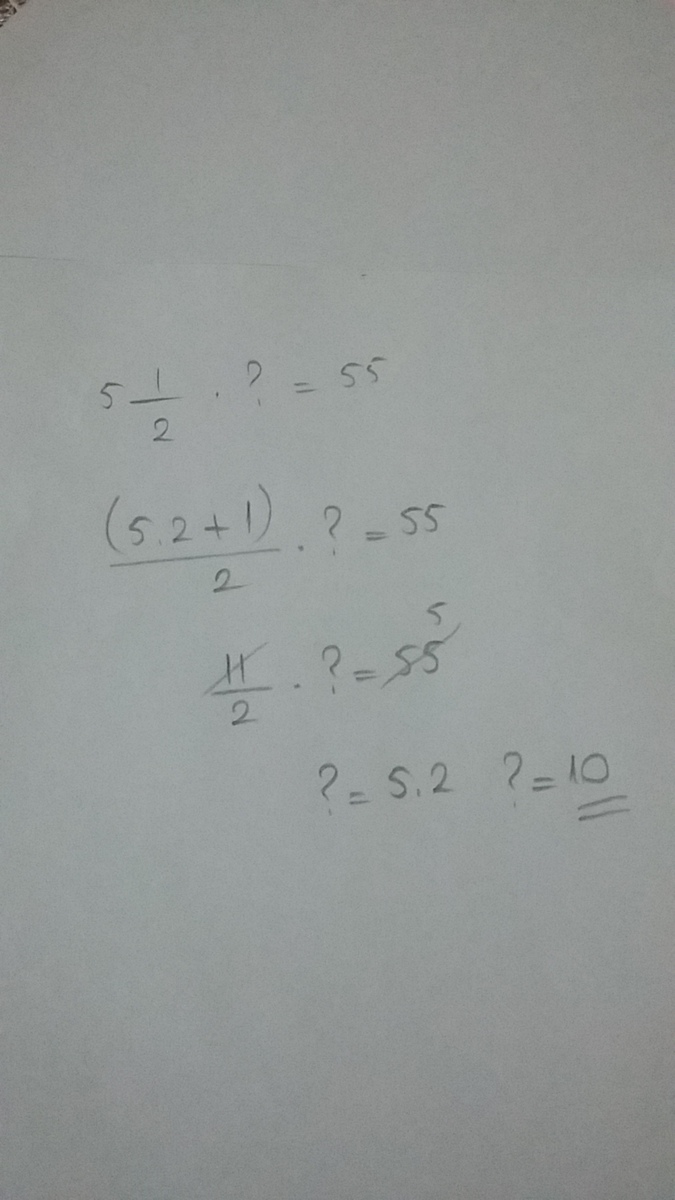 5 1/2 . ? = 55
(5.2+1)/2 . ? = 55
11/2 . ? = 55 5
? = 5.2 ? = 10